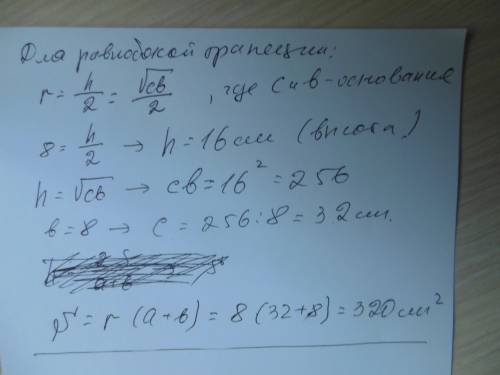 Для равнобокой трапеции:
r = h/2 = √cв/2 , где с и в - основания
8 = h/2 → h = 16 см (высота)
h = √cв → cв = 16² = 256
в = 8 → c = 256 : 8 = 32 см.
S = r (a + в) = 8 (32 + 8) = 320 см²